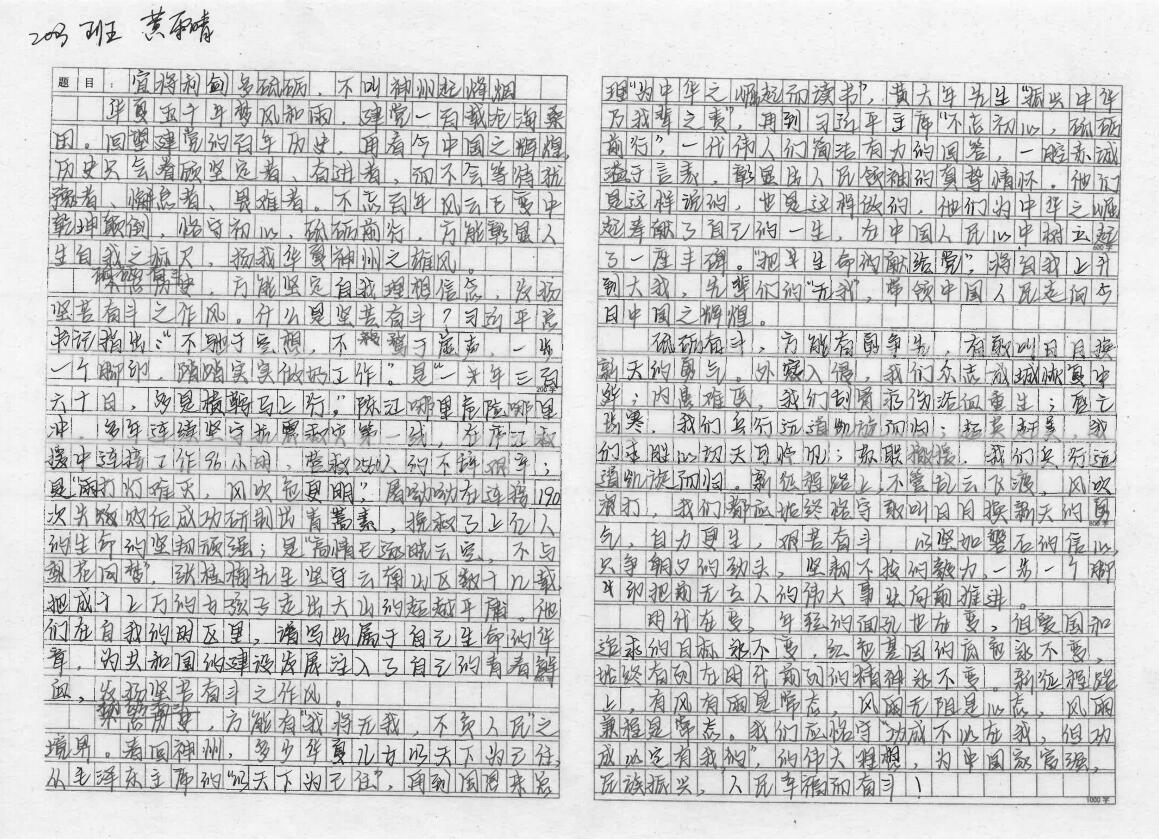 203班 黄雨晴
题目：宜将利剑多砥砺，不叫神州起烽烟
华夏五千年梦风和雨，建党一百载沧海桑
田。回望建党的百年历史，再看今中国之辉煌，
历史只会眷顾坚定者、奋进者，而不会等待犹
豫者、懈怠者、畏难者。不忘百年风云巨变中
乾坤颠倒，恪守初心，砥砺前行，方能彰显人
生自我之标尺，扬我华夏神州之雄风。
方能坚定自我理想信念，发扬
坚苦奋斗之作风。什么是坚苦奋斗？习近平总
书记指出："不驰于空想，不骛于虚声，一步
一个脚印，踏踏实实做好工作。"是"一年三百
六十日，多是横戈马上行。"陈江哪里危险哪里
冲，多年连续坚守抗震救灾第一线，在芦江救
援中连续工作96小时，营救 人的不辞艰辛；
是"雨打灯难灭，风吹色更明"，屠呦呦在连续190
次失败后成功研制出青蒿素，挽救了上亿人
的生命的坚韧顽强；是"高情已逐晓云空，不与
梨花同梦"，张桂梅先生坚守云南山区数十几载，
把成千上万的女孩子走出大山的超越平庸。他
们在自我的时区里，谱写出属于自己生命的华
章，为共和国的建设发展注入了自己的青春鲜
血，发扬坚苦奋斗之作风。
方能有"我将无我，不负人民"之
境界。看回神州，多少华夏儿女以天下为己任，
从毛泽东主席的"以天下为己任"，再到周恩来总
理"为中华之崛起而读书"，黄大年先生"振兴中华
乃我辈之责"，再到习近平主席"不忘初心，砥砺
前行"，一代伟人们简洁有力的回答，一腔赤诚
溢于言表，彰显出人民领袖的真挚情怀。他们
是这样说的，也是这样做的，他们为中华之崛
起奉献了自己的一生，在中国人民心中树立起
了一座丰碑。"把毕生命的献给党"，将自我上升
到大我，先辈们的"无我"，带领中国人民走向今
日中国之辉煌。
砥砺奋斗，方能有勇争先，有敢叫日月换
新天的勇气。外寇入侵，我们众志成城 中
华；内患难
我们 活血重生；
我们
们走胜 我们 远
道凯旋而归。新征程路上，不管乱云飞渡，风吹
浪打，我们都应始终恪守敢叫日月换新天的勇
气，自力更生，艰苦奋斗 以坚如磐石的信心，
只争朝夕的劲头，坚韧不拔的毅力，一步一个脚
印把前无古人的伟大事业向前推进。
时代在变，年轻的面孔也在变，但爱国和
追求的目标永不变，红色基因的底色永不变，
始终奋勇在时代前列的精神永不变。新征程路
上，有风有雨是常态，风雨无阻是心态，风雨
兼程是常态。我们应恪守"功成不必在我，但功
成必定有我的"，的伟大理想，为中国家富强，
民族振兴，人民幸福而奋斗！
200字
600字
800字
1000字